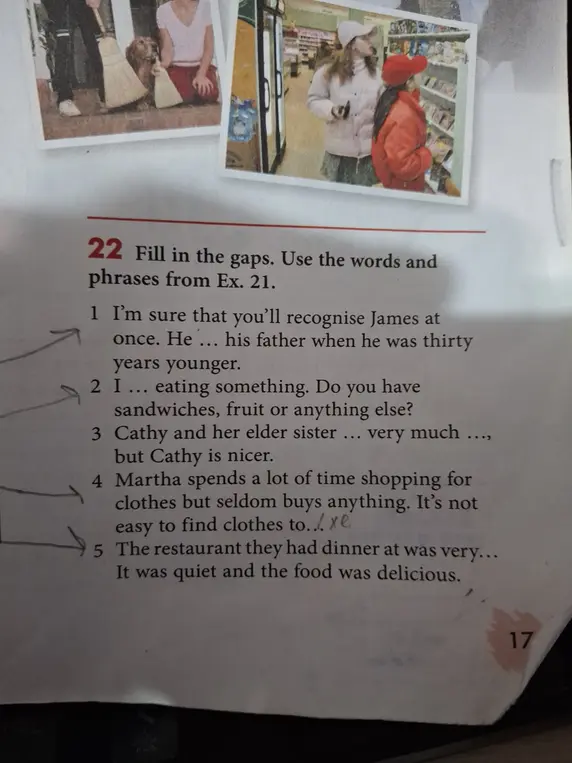 22 Fill in the gaps. Use the words and
phrases from Ex. 21.
1 I'm sure that you'll recognise James at
once. He ... his father when he was thirty
years younger.
2 I ... eating something. Do you have
sandwiches, fruit or anything else?
3 Cathy and her elder sister ... very much ...,
but Cathy is nicer.
4 Martha spends a lot of time shopping for
clothes but seldom buys anything. It's not
easy to find clothes to...
5 The restaurant they had dinner at was very...
It was quiet and the food was delicious.
17